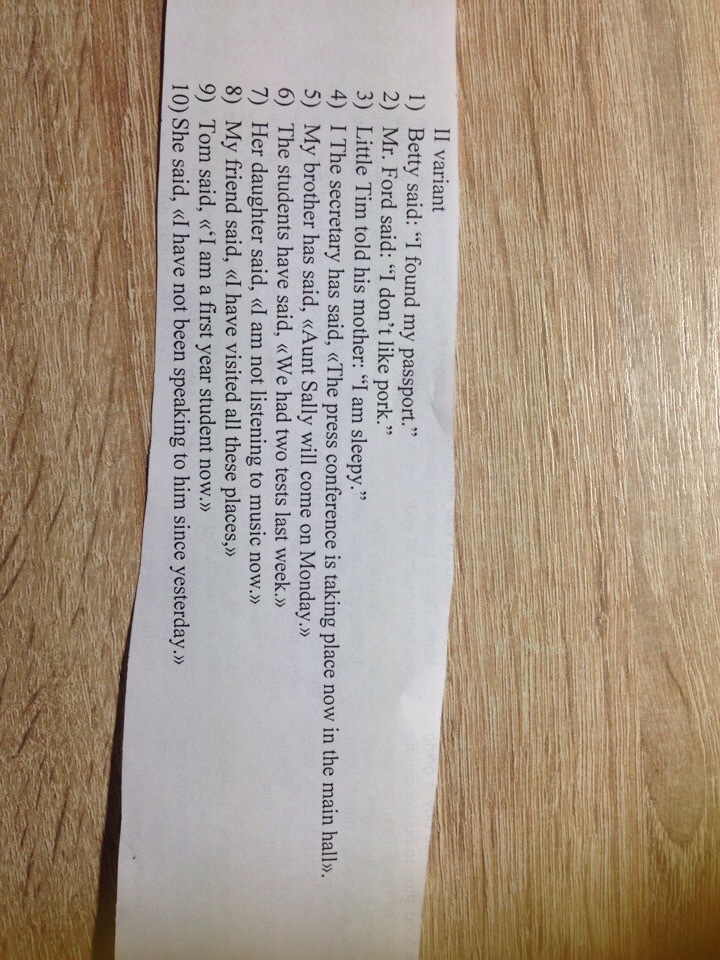 II variant
1) Betty said: “I found my passport.”
2) Mr. Ford said: “I don’t like pork.”
3) Little Tim told his mother: “I am sleepy.”
4) I The secretary has said, «The press conference is taking place now in the main hall».
5) My brother has said, «Aunt Sally will come on Monday.»
6) The students have said, «We had two tests last week.»
7) Her daughter said, «I am not listening to music now.»
8) My friend said, «I have visited all these places,»
9) Tom said, «‘I am a first year student now.»
10) She said, «I have not been speaking to him since yesterday.»